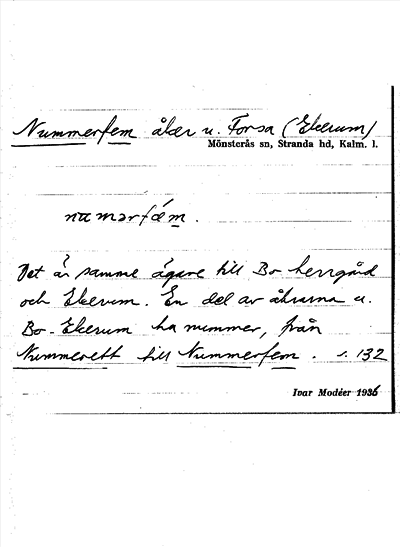 Nummerfem åker u. Forsa (Ekerum)
Mönsterås sn, Stranda hd, Kalm. l.
nɯmərfǽm.
Det är samme ägare till Bo herrgård
och Ekerum. En del av åkrarna u.
Bo-Ekerum ha nummer, från
Nummerett till Nummerfem. s. 132
Ivar Modéer 1936